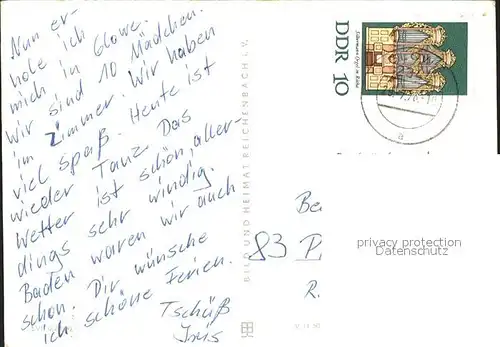 Nun er-
hole ich
mich in Glowe.
Wir sind 10 Mädchen
im Zimmer. Wir haben
viel Spaß. Heute ist
wieder Tanz. Das
Wetter ist schön, aller-
dings sehr windig.
Baden waren wir auch
schon. Dir wünsche
ich schöne Ferien.
Tschüß
Iris
BILD UND HEIMAT REICHENBACH I. V.
DDR 10
Silbermann-Orgel in Rötha
a
Be
83 P
R.
privacy protection
Datenschutz